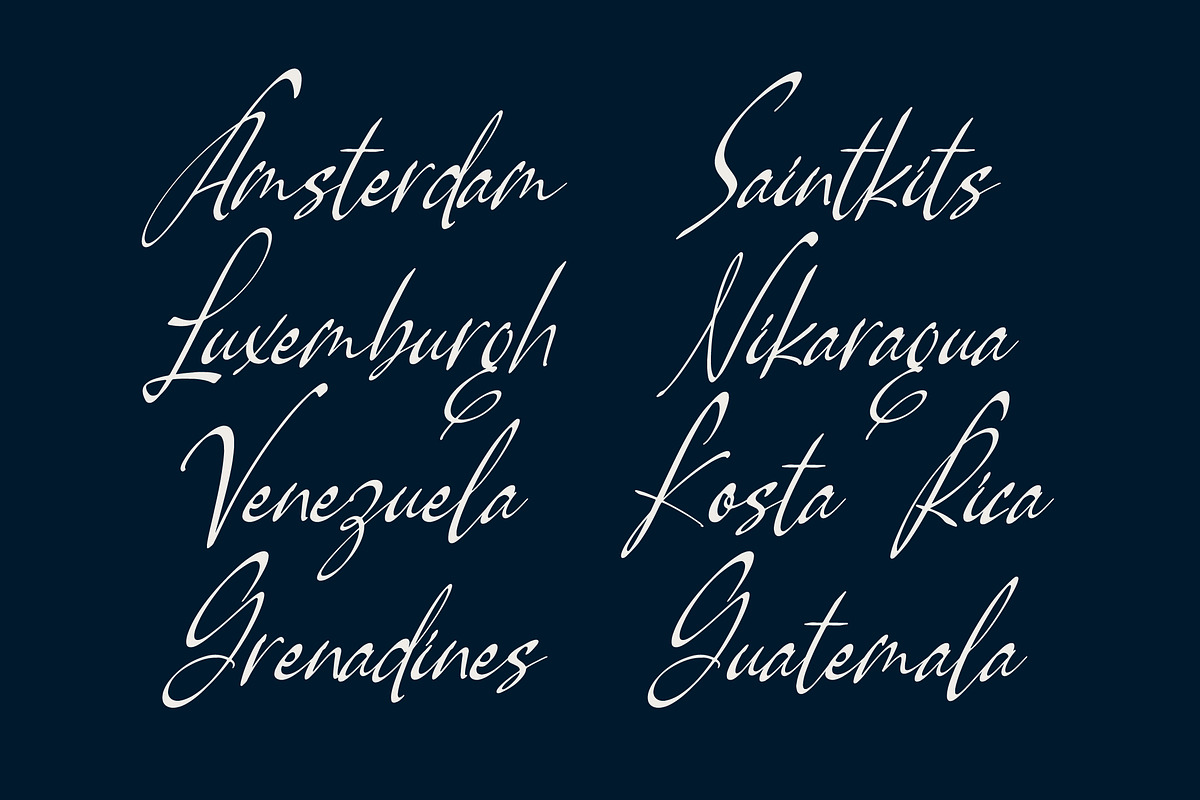 Amsterdam
Luxemburgh
Venezuela
Grenadines
Saintkits
Nikaragua
Kosta Rica
Guatemala